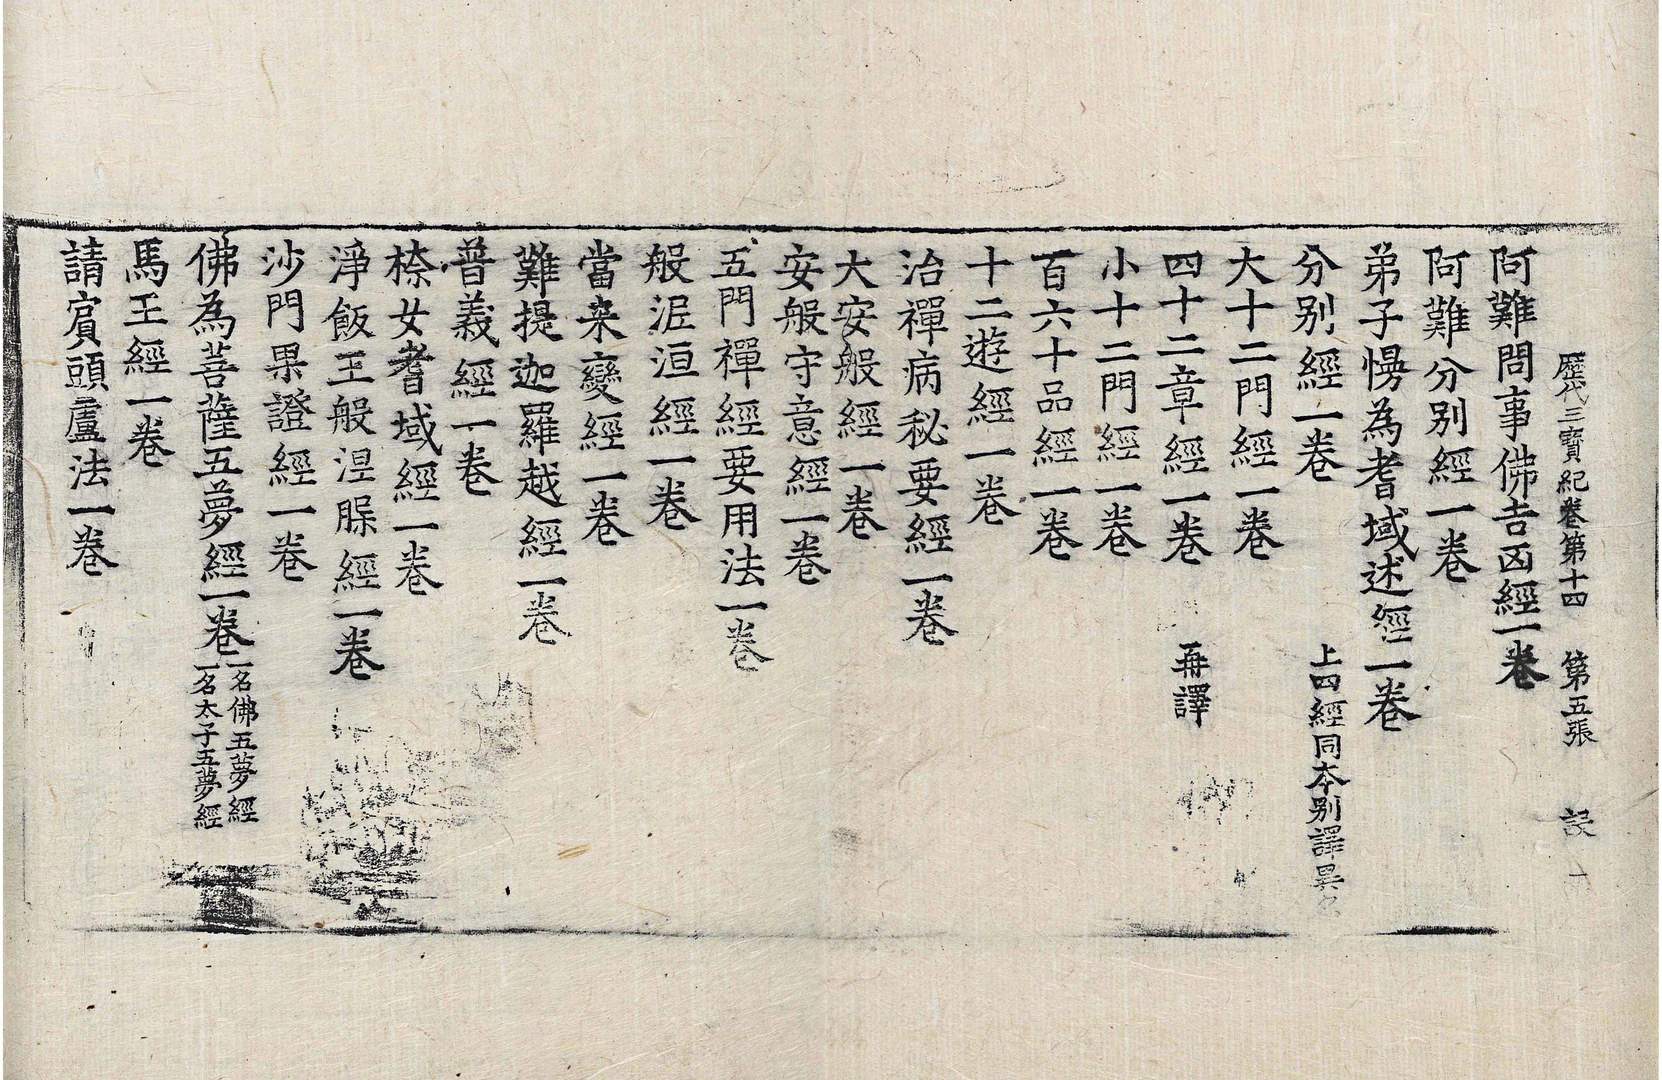 歷代三寶紀卷第十四　第五張　設
阿難問事佛吉凶經一卷
阿難分別經一卷
弟子慢為耆域述經一卷
分別經一卷　上四經同本別譯異名
大十二門經一卷
四十二章經一卷　再譯
小十二門經一卷
百六十品經一卷
十二遊經一卷
治禪病秘要經一卷
大安般經一卷
安般守意經一卷
五門禪經要用法一卷
般泥洹經一卷
當来變經一卷
難提迦羅越經一卷
普義經一卷
㮈女耆域經一卷
淨飯王般涅槃經一卷
沙門果證經一卷
佛為菩薩五夢經一卷
一名佛五夢經
一名太子五夢經
馬王經一卷
請賔頭盧法一卷